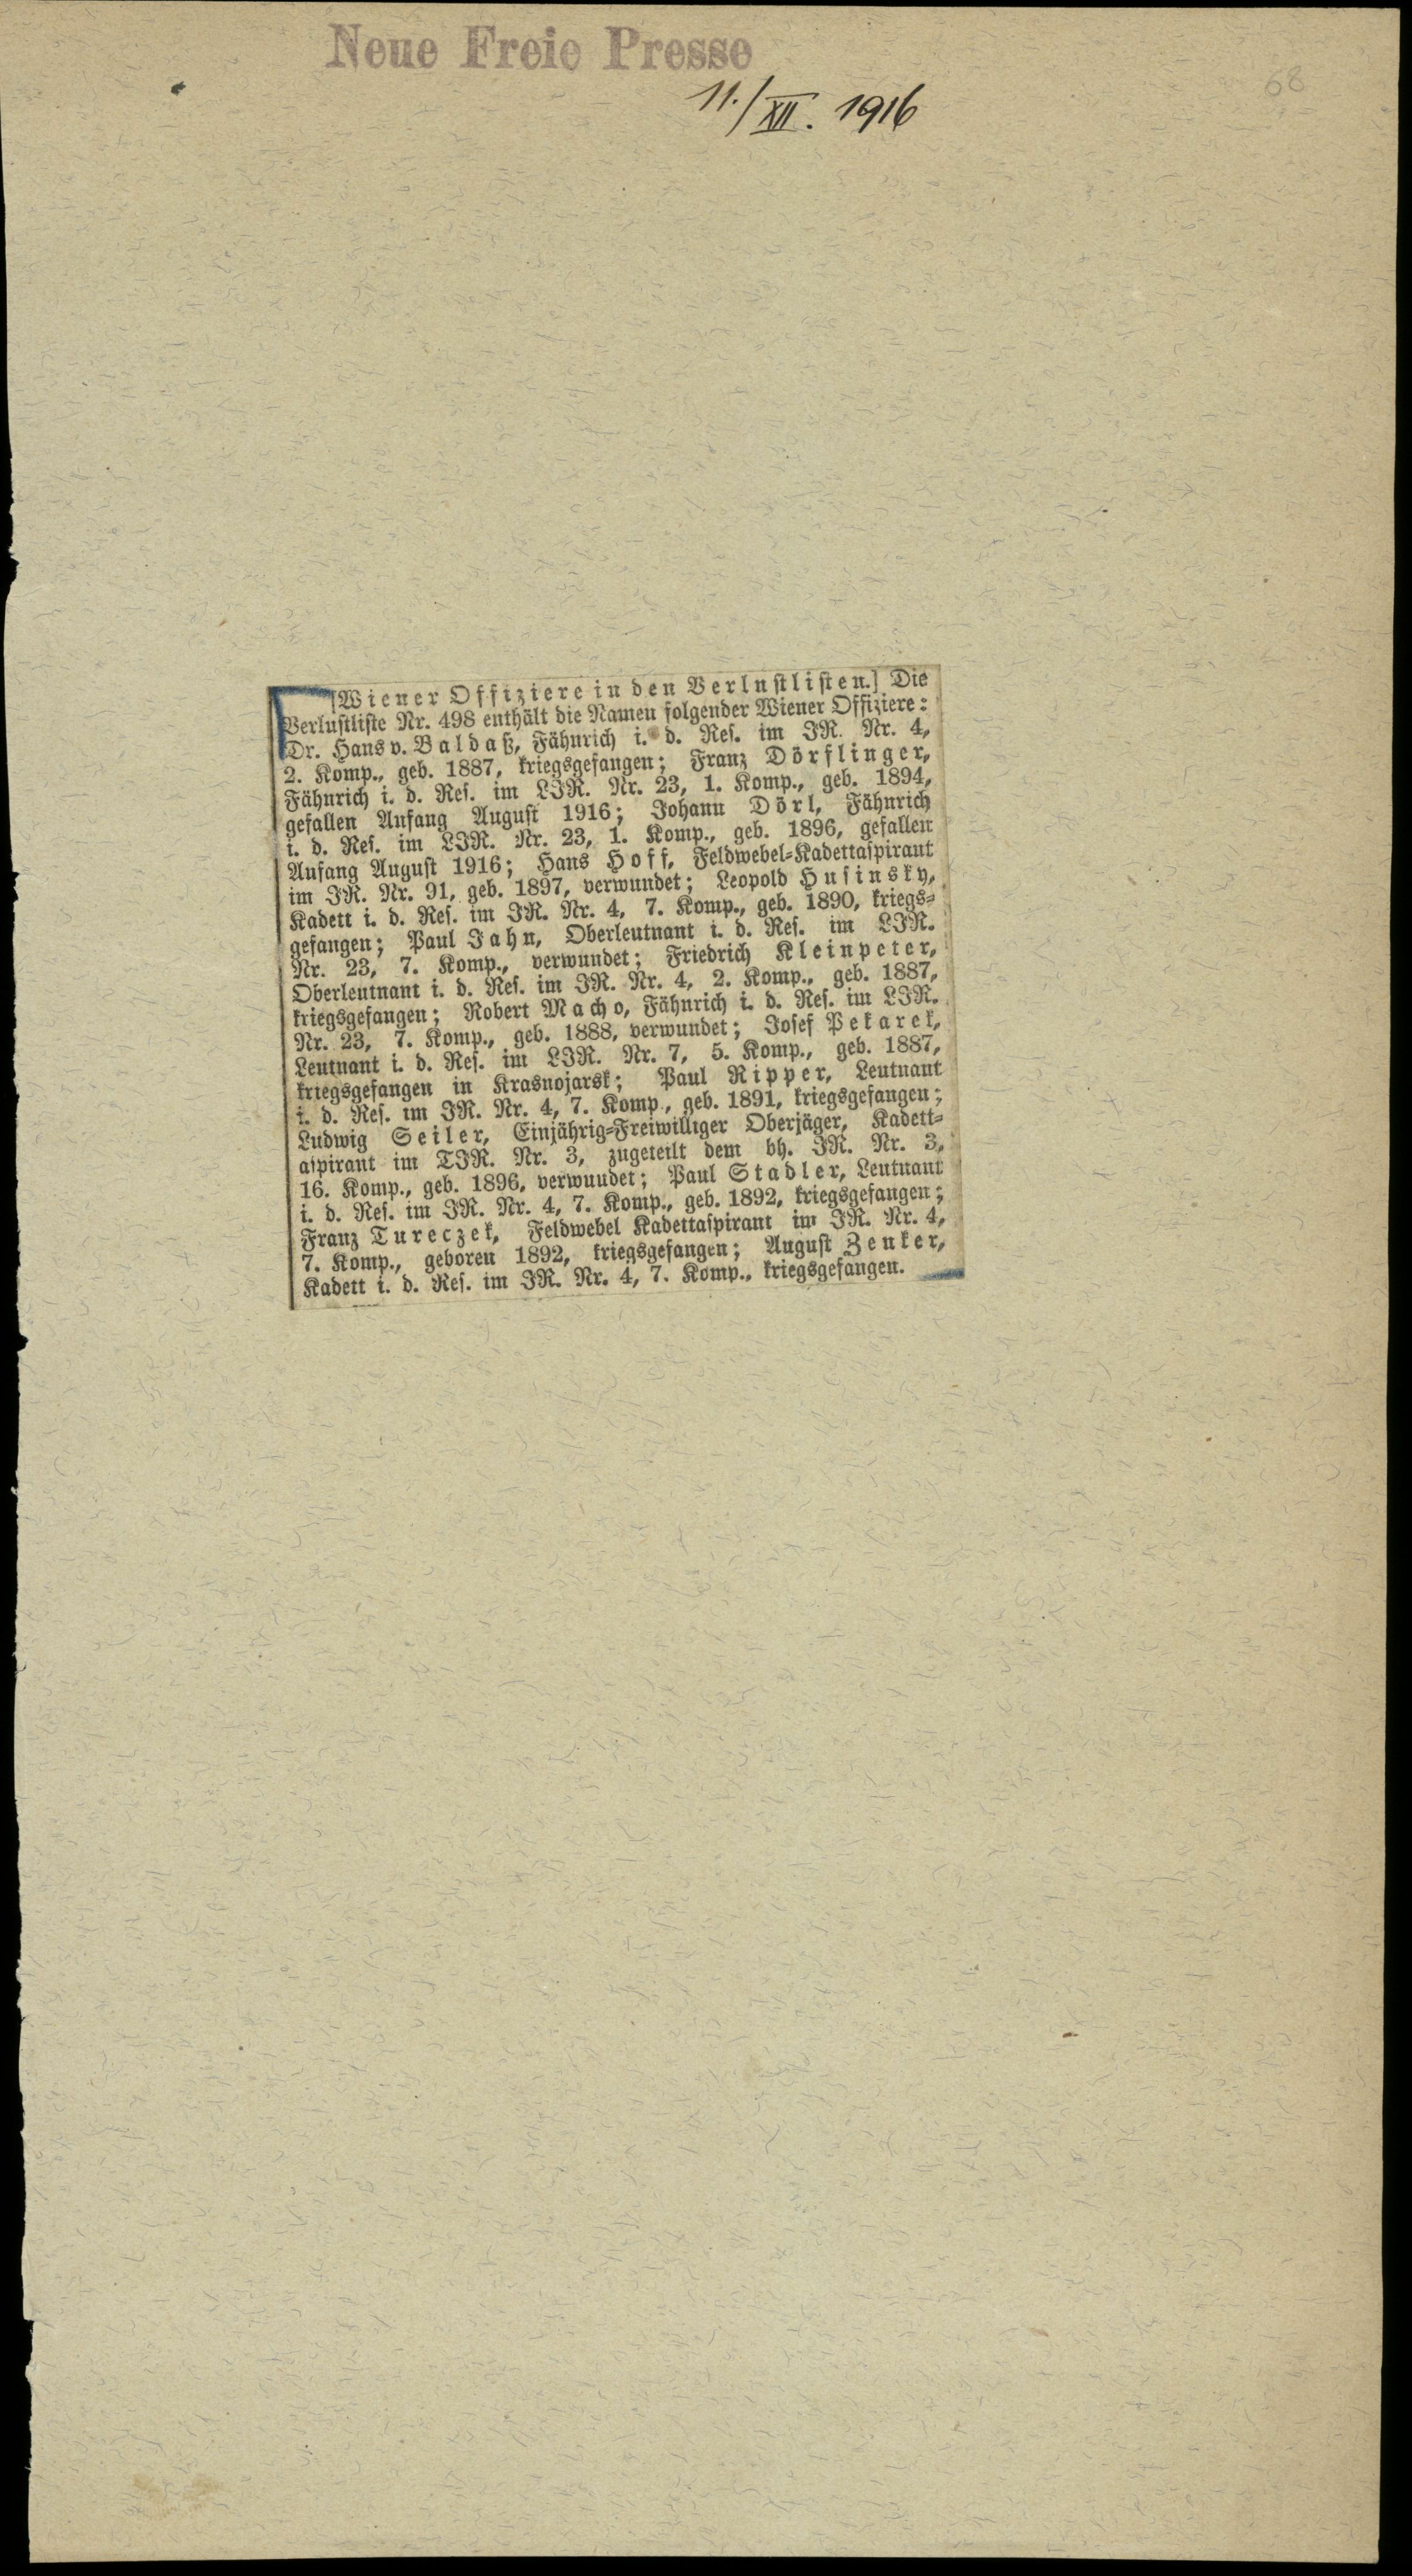 Neue Freie Presse
11./XII. 1916
68
[Wiener Offiziere in den Verlustlisten.] Die
Verlustliste Nr. 498 enthält die Namen folgender Wiener Offiziere:
Dr. Hans v. Baldaß, Fähnrich i. d. Res. im IR. Nr. 4,
2. Komp., geb. 1887, kriegsgefangen; Franz Dörflinger,
Fähnrich i. d. Res. im LIR. Nr. 23, 1. Komp., geb. 1894,
gefallen Anfang August 1916; Johann Dörl, Fähnrich
i. d. Res. im LIR. Nr. 23, 1. Komp., geb. 1896, gefallen
Anfang August 1916; Hans Hoff, Feldwebel-Kadettaspirant
im IR. Nr. 91, geb. 1897, verwundet; Leopold Husinsky,
Kadett i. d. Res. im IR. Nr. 4, 7. Komp., geb. 1890, kriegs-
gefangen; Paul Jahn, Oberleutnant i. d. Res. im LIR.
Nr. 23, 7. Komp., verwundet; Friedrich Kleinpeter,
Oberleutnant i. d. Res. im IR. Nr. 4, 2. Komp., geb. 1887,
kriegsgefangen; Robert Macho, Fähnrich i. d. Res. im LIR.
Nr. 23, 7. Komp., geb. 1888, verwundet; Josef Pekarek,
Leutnant i. d. Res. im LIR. Nr. 7, 5. Komp., geb. 1887,
kriegsgefangen in Krasnojarsk; Paul Ripper, Leutnant
i. d. Res. im IR. Nr. 4, 7. Komp., geb. 1891, kriegsgefangen;
Ludwig Seiler, Einjährig-Freiwilliger Oberjäger, Kadett-
aspirant im TIR. Nr. 3, zugeteilt dem bh. IR. Nr. 3,
16. Komp., geb. 1896, verwundet; Paul Stadler, Leutnant
i. d. Res. im IR. Nr. 4, 7. Komp., geb. 1892, kriegsgefangen;
Franz Tureczek, Feldwebel Kadettaspirant im IR. Nr. 4,
7. Komp., geboren 1892, kriegsgefangen; August Zenker,
Kadett i. d. Res. im IR. Nr. 4, 7. Komp., kriegsgefangen.